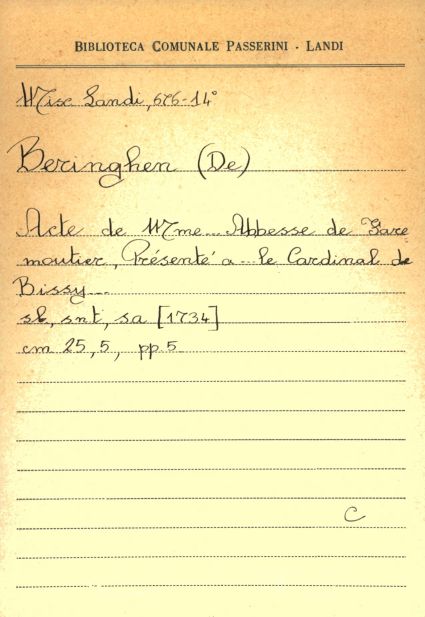 BIBLIOTECA COMUNALE PASSERINI - LANDI
Misc Landi, 676-14°
Beringhen (De)
Acte de Mme... Abbesse de Fare
moutier, Présenté a... le Cardinal de
Bissy...
sl, snt, sa [1734]
cm 25,5, pp. 5
C